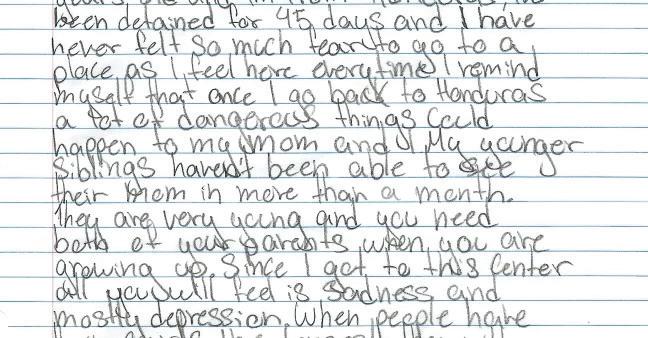 been detained for 45 days and I have
never felt so much fear to go to a
place as I feel here everytime I remind
myself that once I go back to Honduras
a lot of dangerous things could
happen to my mom and I. My younger
siblings haven't been able to see
their mom in more than a month.
They are very young and you need
both of your parents when you are
growing up. Since I got to this Center
all you will feel is sadness and
mostly depression. When people have